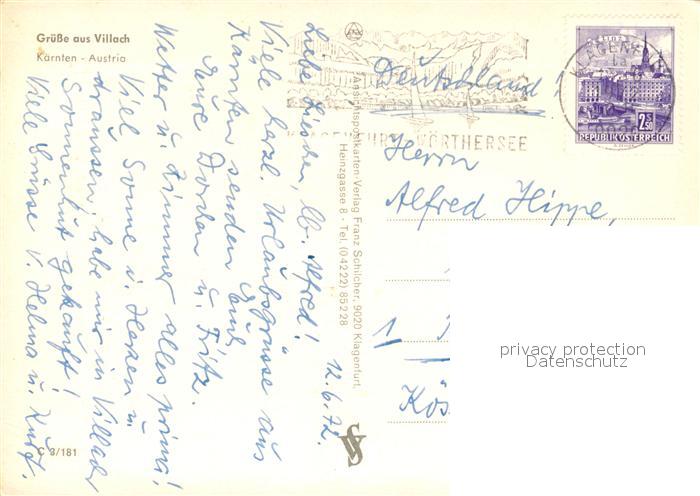 Grüße aus Villach
Kärnten - Austria
12.6.72.
Liebe Lieschen, lb. Alfred!
Viele herzl. Urlaubsgrüsse aus
Kärnten senden Euch
Eure Dorchen u. Fritz.
Wetter u. Zimmer alles prima!
Viel Sonne i. Herzen u.
draussen, habe mir in Villach
Sonnenhut gekauft!
Viele Grüsse v. Helma u. Kurt.
C 3/181
Ansichtspostkarten-Verlag Franz Schilcher, 9020 Klagenfurt,
Heinzgasse 8 - Tel. (04222) 85228
WÖRTHERSEE
KLAGENFURT
2.50
REPUBLIK ÖSTERREICH
Deutschland
Herrn
Alfred Hippe,
1
privacy protection
Datenschutz